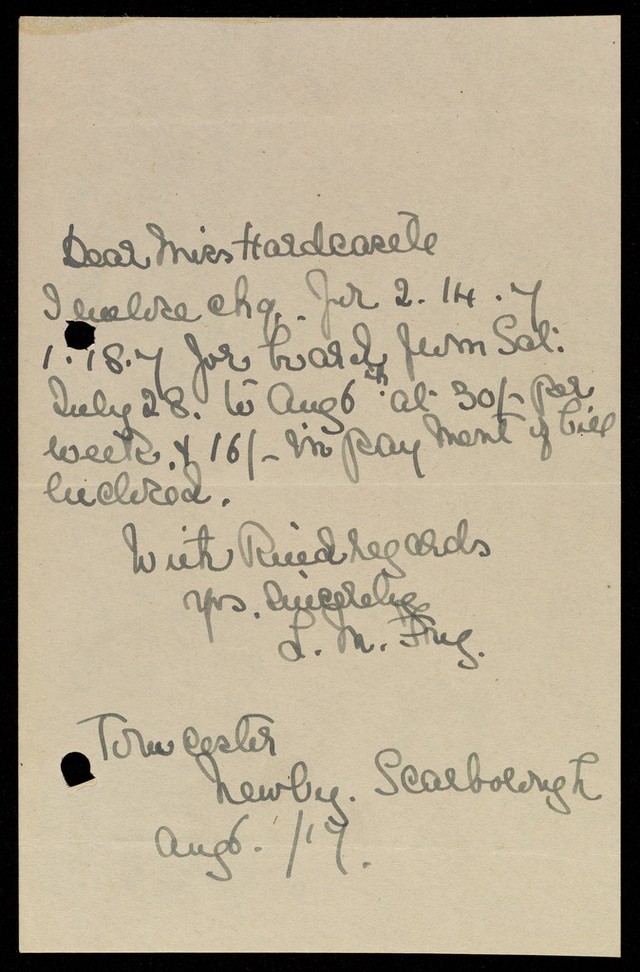 Dear Miss Hardcastle
I enclose chq. for 2. 14. 7
1. 18. 7 for board from Sat:
July 28. to Aug 6th. at 30/- per
week. & 16/- in payment of bill
enclosed.
With Kind regards
yrs. sincerely
L. M. Fry.
Towcester
Newby. Scarborough
Aug 6. /17.